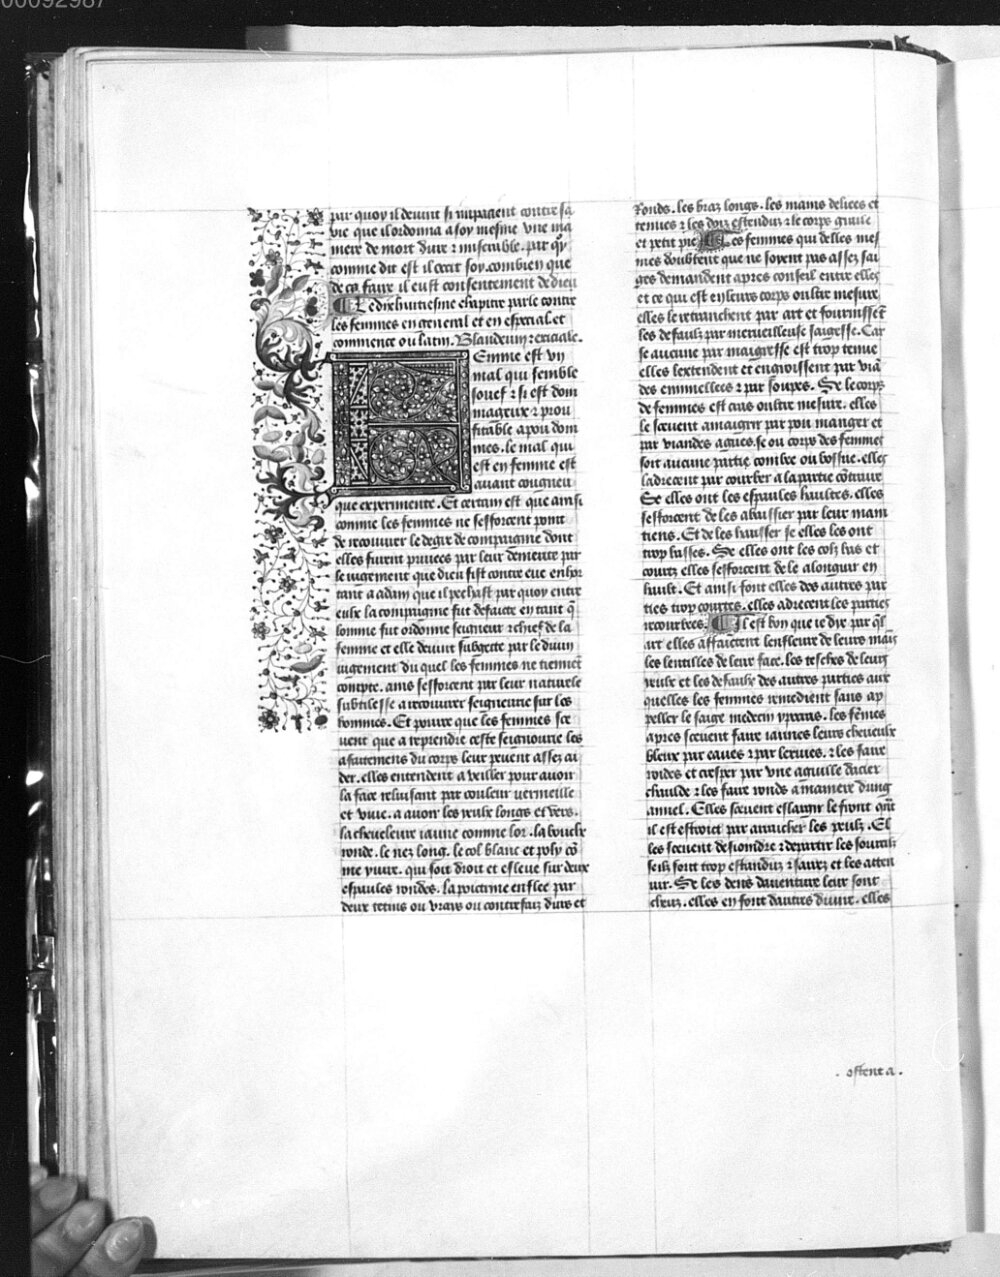 00092987
par quoy il deuint si impacient contre sa
vie que il ordonna a soy mesme vne ma
niere de mort dure ⁊ miserable. par qʳ
comme dit est il occit soy. combien que
de ce faire il eust consentement de dieu
Le dixhuitiesme chapitre parle contre
les femmes en general et en especial et
commence ou latin. Blandeum ⁊ exiciale.
Femme est vn
mal qui semble
souef ⁊ si est dom
mageux ⁊ prou
fitable a pou dom
mes. le mal qui
est en femme est
auant congneu
que experimente. Et certain est que ainsi
comme les femmes ne sefforcent point
de recouurer le degre de compaignie dont
elles furent priuees par leur demerite par
le iugement que dieu fist contre eue enhor
tant a adam que il pechast par quoy entre
eulx la compaignie fut deffaicte en tant q̄
lomme fut ordonne seigneur ⁊ chief de la
femme et elle deuint subgecte par le diuin
iugement du quel les femmes ne tiennēt
compte. ains sefforcent par leur naturele
subtilesse a recouurer seigneurie sur les
hommes. Et pource que les femmes sce
uent que a reprendre ceste seignourie les
afaitemens du corps leur peuent assez ai
der. elles entendent a veiller pour auoir
la face reluisant par couleur vermeille
et viue. a auoir les yeulx longs et vers.
la cheueleure iaune comme lor. la bouche
ronde. le nez long. le col blanc et poly cō
me yuire. qui soit droit et esleue sur deux
espaules rondes. la poictrine enflee par
deux tetins ou vrays ou contrefaiz durs et
ronds. les braz longs. les mains delices et
tenues ⁊ les doiz estenduz ⁊ le corps graile
et petit pie Les femmes qui delles mes
mes doubtent que ne soyent pas assez sai
ges demandent apres conseil entre elles
et ce qui est en leurs corps oultre mesure
elles le retranchent par art et fournissēt
les defaulx par merueilleuse saigesse. Car
se aucune par maigresse est trop tenue
elles lextendent et engroissent par viā
des emmiellees ⁊ par soupes. Se le corps
de femmes est cras oultre mesure. elles
le sceuent amaigrir par pou manger et
par viandes aigues. se ou corps des femmes
soit aucune partie combre ou bossue. elles
ladrecent par courber a la partie cōtraire
Se elles ont les espaules haultes. elles
sefforcent de les abaissier par leur main
tiens. Et de les haulser se elles les ont
trop basses. Se elles ont les colz bas et
courtz elles sefforcent de le alonguir en
hault. Et ainsi font elles des autres par
ties trop courtes. elles adrecent les parties
recourbees. Il est bon que ie dye par ql̄
art elles affaictent lenfleure de leurs mais
les lentilles de leur face. les tesches de leurs
yeulx et les defaulx des autres parties aux
quelles les femmes remedient sans ap
peller le saige medecin ypocras. les fēmes
apres sceuent faire iaunes leurs cheueulx
bleux par eaues ⁊ par lexiues. ⁊ les faire
roides et cresper par vne aguille dacier
chaulde ⁊ les faire ronds a maniere dung
annel. Elles sceuent eslargir le front qn̄t
il est estroict par arracher les peulz. El
les sceuent desioindre ⁊ departir les sourcilz
seilz sont trop estanduz ⁊ sauez et les atten
uir. Se les dens dauenture leur sont
cheuz. elles en font dautres diuire. elles
. ostent a .